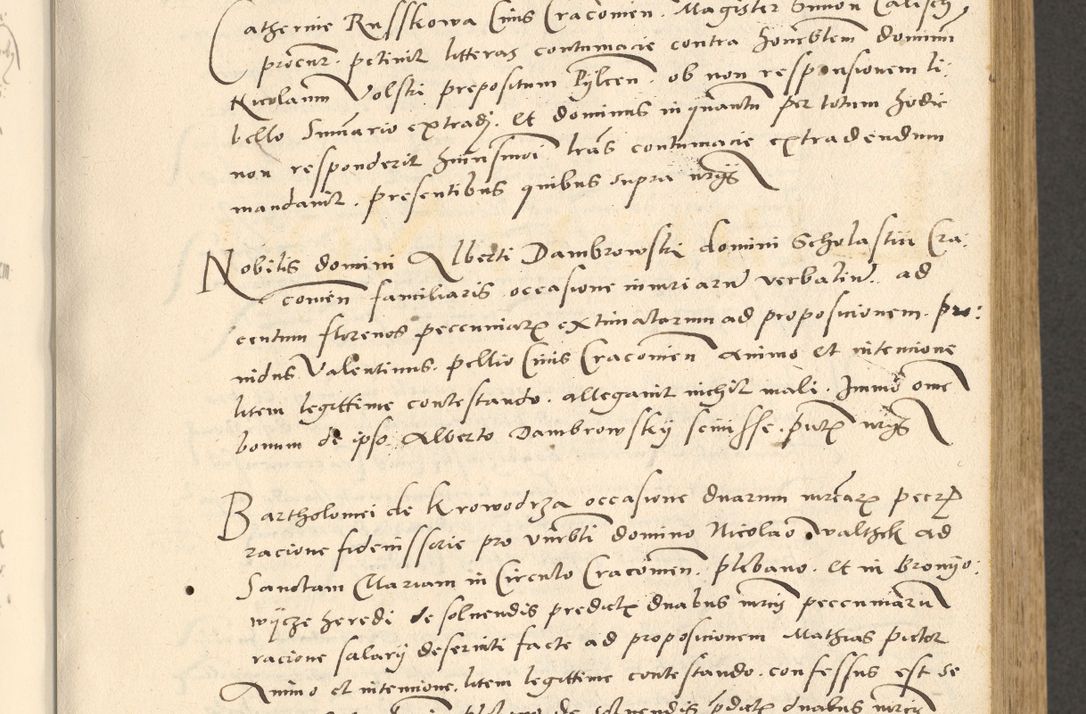 Catherine Russkowa Civis Cracovien. Magister Simon Calisch
procur. petivit litteras contumacie contra honorblem dominum
Nicolaum Volski prepositum Pylcen. ob non responsionem li:
bello Summario extradj. Et dominus inquantu per totum hodie
non responderit huiusmoi lras contumacie extradendum
mandavit. presentibus quibus supra
Nobilis domini Alberti Dambrowski domini Scholastici Cra:
covien familiaris occasione iniuriaru verbaliu. ad
centum florenos peccuniarz extimatarum ad proposicionem. pro:
vidus Valentinus. pellio Civis Cracovien Animo et intencione
litem legittime contestando. allegavit nichil mali. Immo ome
bonum de ipso Alberto Dambrowskij scivisse. pntz
Bartholomei de Krowodrza occasione duarum mrcarz peccrz
racione fideiussorie pro vnrbli domino Nicolao walthek ad
Sanctam Mariam in Circulo Cracovien. plebano. et in Bronyo:
wycze heredi de solvendis predictz duabus mrcis peccuniaru
racione salarij deserviti facte ad proposicionem Mathias pictor
Animo et intencione. litem legittime contestando. confessus est se
de solvendis pdictz duabus mrcis